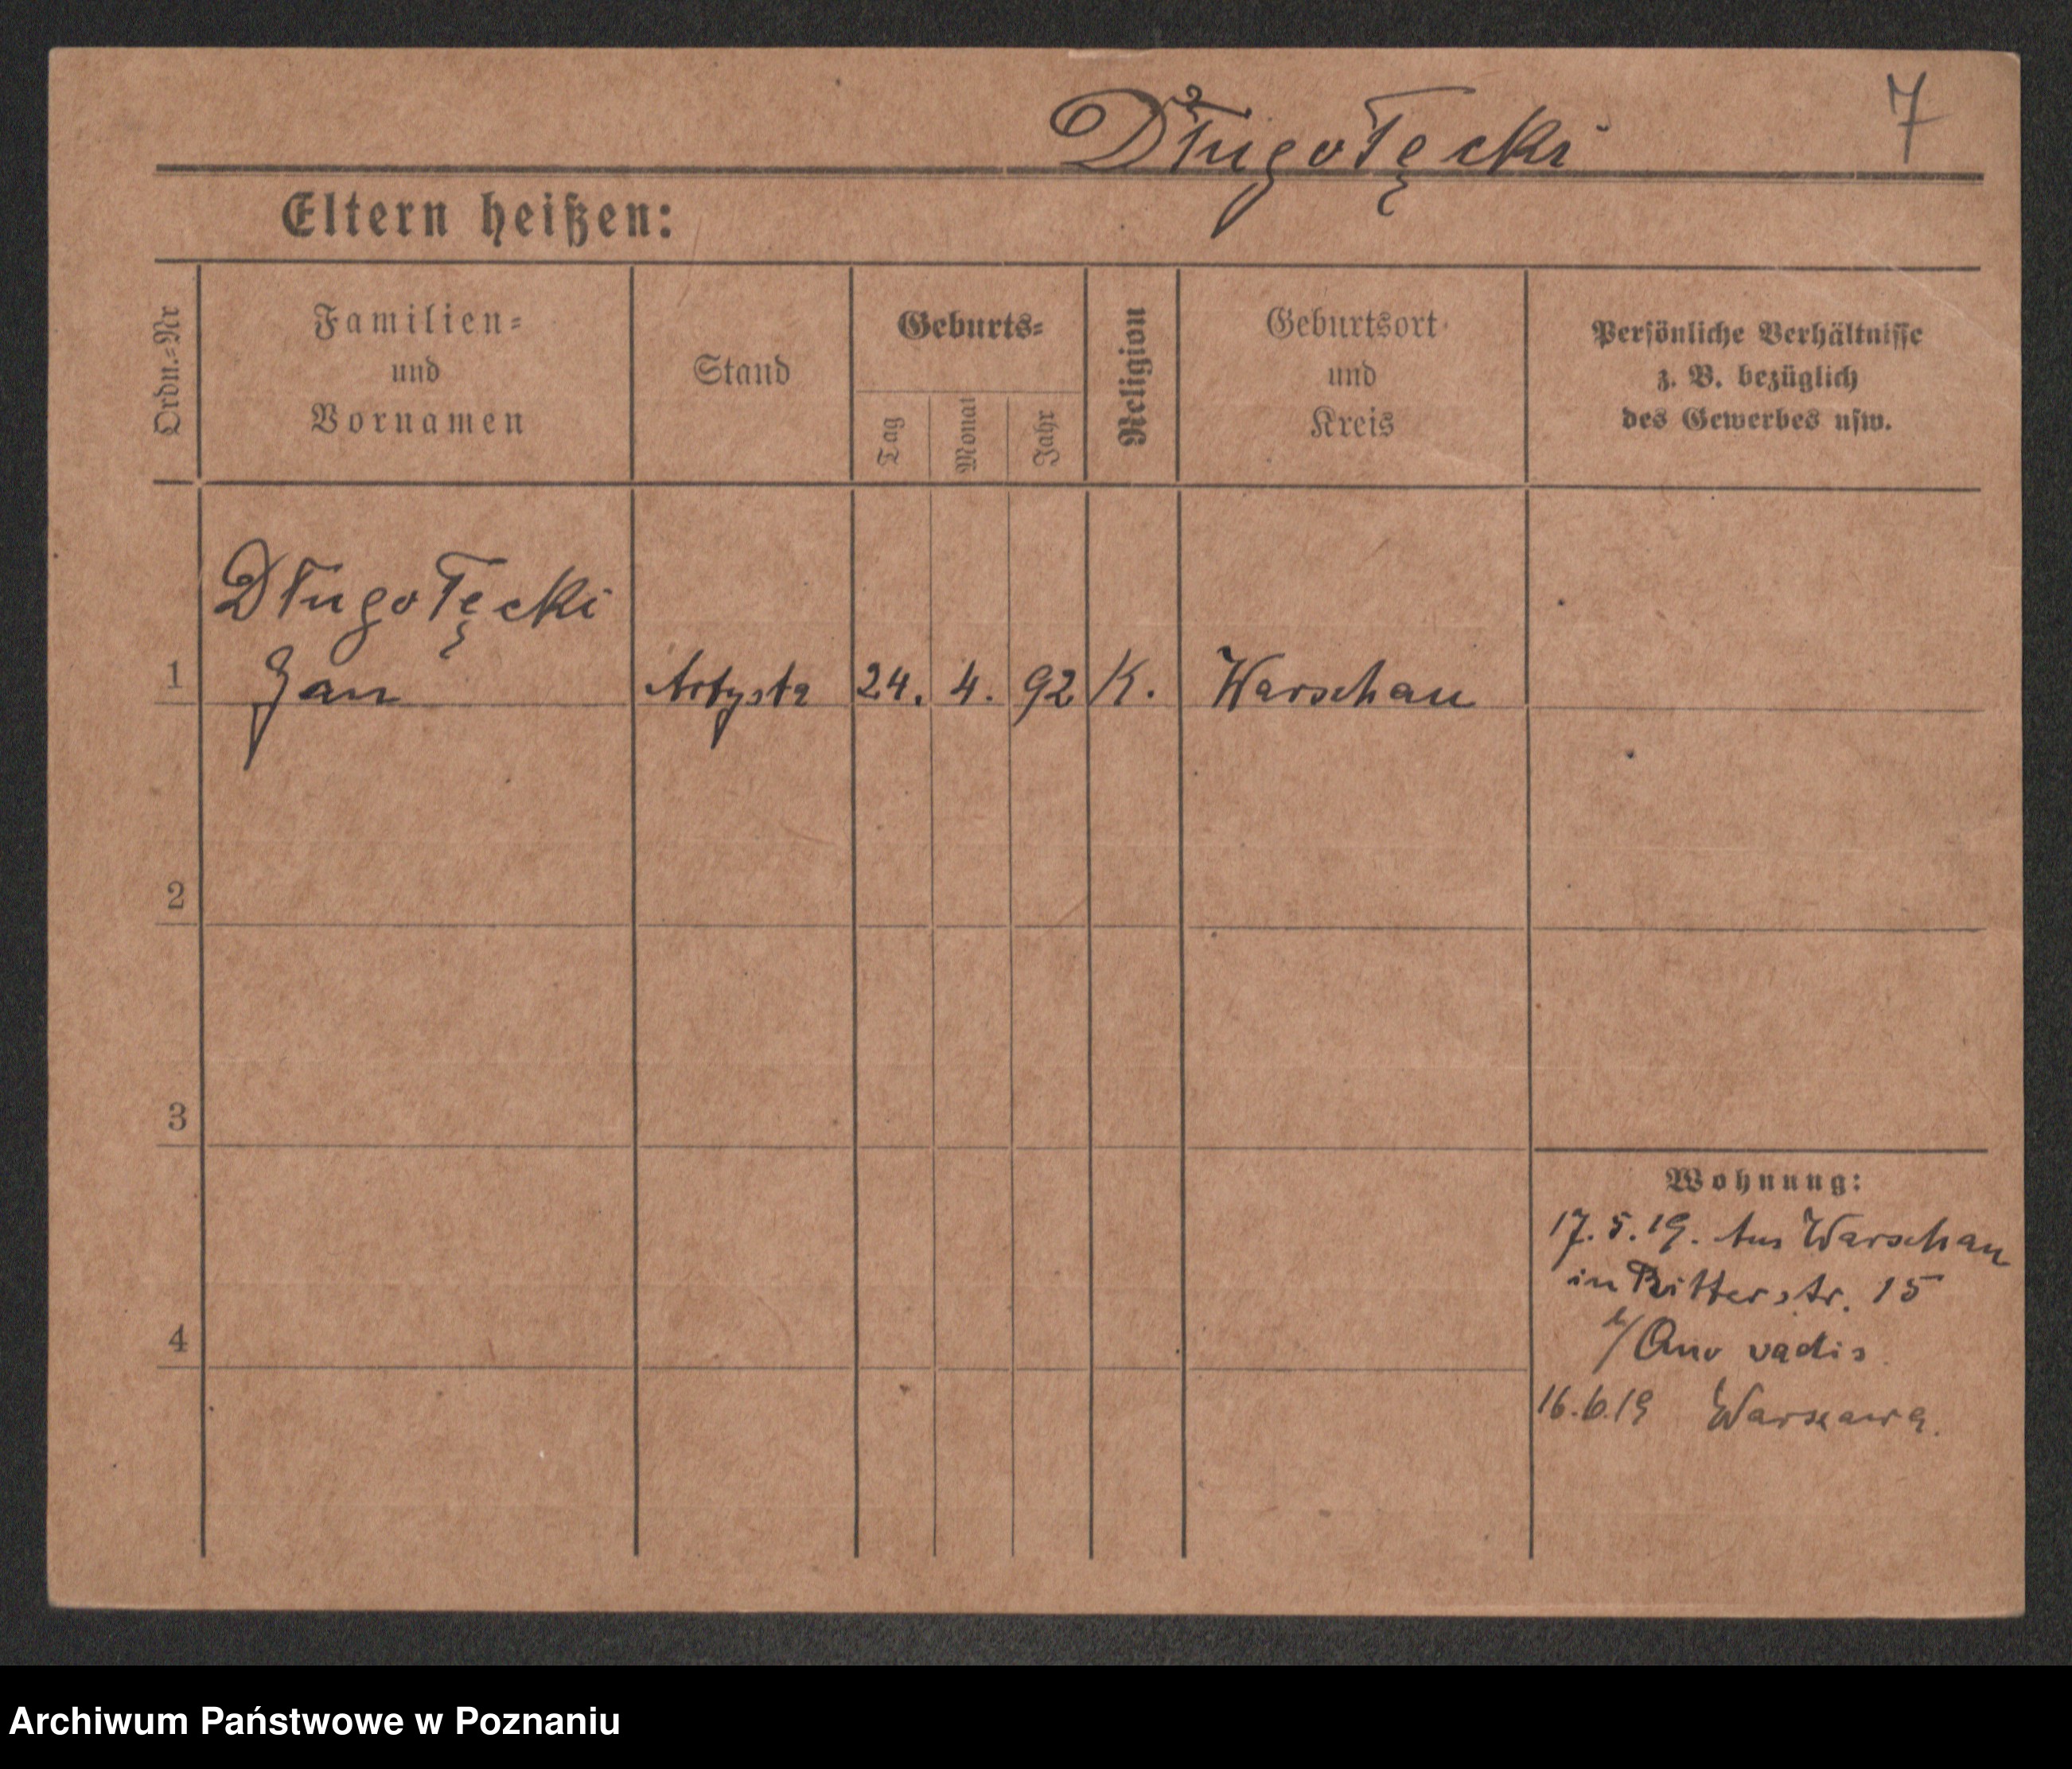 Długołęcki 7
Eltern heißen:
Ordn.=Nr
Familien=
und
Vornamen
Stand
Geburts=
Tag
Monat
Jahr
Religion
Geburtsort
und
Kreis
Persönliche Verhältnisse
z. B. bezüglich
des Gewerbes usw.
Długołęcki
1 Jan Artysta 24. 4. 92 K. Warschau
2
3
4
Wohnung:
17.5.19. Aus Warschau
in Ritterstr. 15
b/ Quo vadis
16.6.19 Warszawa.
Archiwum Państwowe w Poznaniu